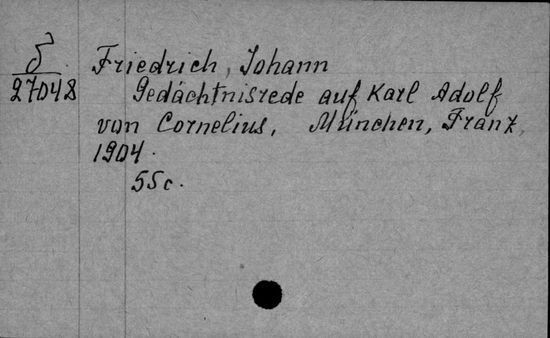 Friedrich, Johann
27048 Gedächtnisrede auf Karl Adolf
von Cornelius, München, Franz,
1904.
55c.